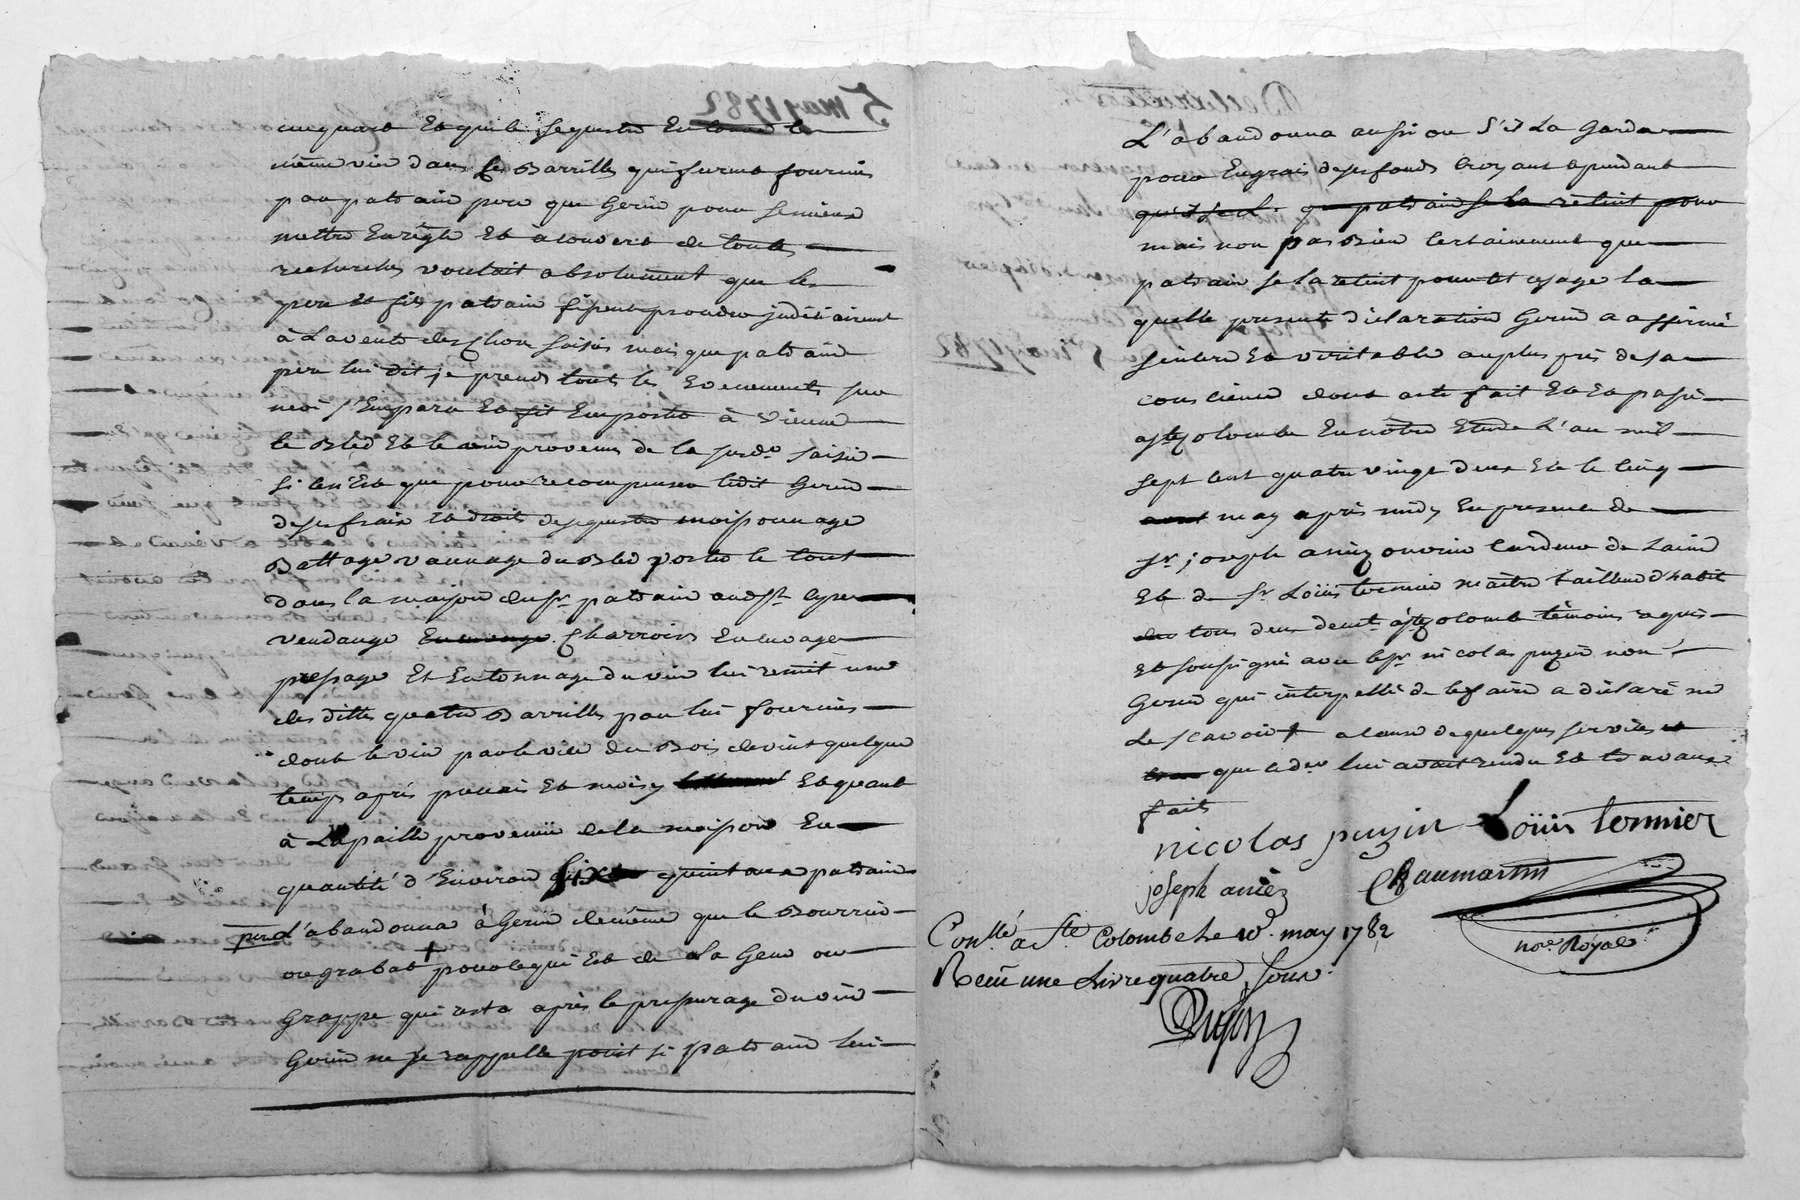 cinquat Et que le sequestre Entonna le
même vin dans les Barrilles qui furent fournies
par patrain pere que Gerin pour se mieux
mettre En règle Et à couvert de toutes
recherches vouloit absolument que les
pere et fils patrain fissent proceder judiciairement
à La vente des choses saisies mais que patrain
père lui dit je prends tous les Evenements sur
moi s'Empara Et fit Emporter à Vienne
le Bled Et le vin provenus de la susde saisie
si ce n'Est que pour recompenser ledit Gerin
de ses frais Et droits de sequestre moissonnage
Battage vannage du Bled porter le tout
dans la maison du sr patrain audit st cyr
vendange Charroirs Encuvage
pressage Et Entonnage du vin lui remit une
des dittes quatre Barrilles par lui fournies
dont le vin par le vice du Bois devint quelque
temps après punais Et moisy Et quant
à La paille provenüe de la moisson En
quantité d'Environ six quintaux patrain
pere l'abandonna à Gerin de même que le Bourrin
ou grabat + pour ce qui Est de La Gene ou
Grappe qui resta après le pressurage du vin
Gerin ne se rappelle point si patrain lui
L'abandonna aussi ou s'il La Garda
pour Engrais de ses fonds croyant cependant
qu'il se la retint pour
mais non pas Bien certainement que
patrain se la retint pour cet usage la
quelle presente déclaration Gerin a affirmé
sincere Et veritable au plus près de sa
conscience dont acte fait Et Et passé
à ste Colombe En notre Etude L'an mil
sept cent quatre vingt deux Et le cinq
may après midy En presence de
sr joseph aniez ouvrier cardeur de laine
Et de sr Loüis termier maître tailleur d'habit
tous deux demts à ste Colombe témoins requis
Et soussignés avec le sr nicolas puzin non
Gerin qui interpellé de le faire a déclaré ne
Le scavoir + a cause de quelques services
que ce der lui avoit rendu Et travaux
faits
nicolas puzin Loüis termier
joseph aniez Chaumartin
nore Royal
Conllé a Ste Colombe Le 10 may 1782
Reçu une Livre quatre sous